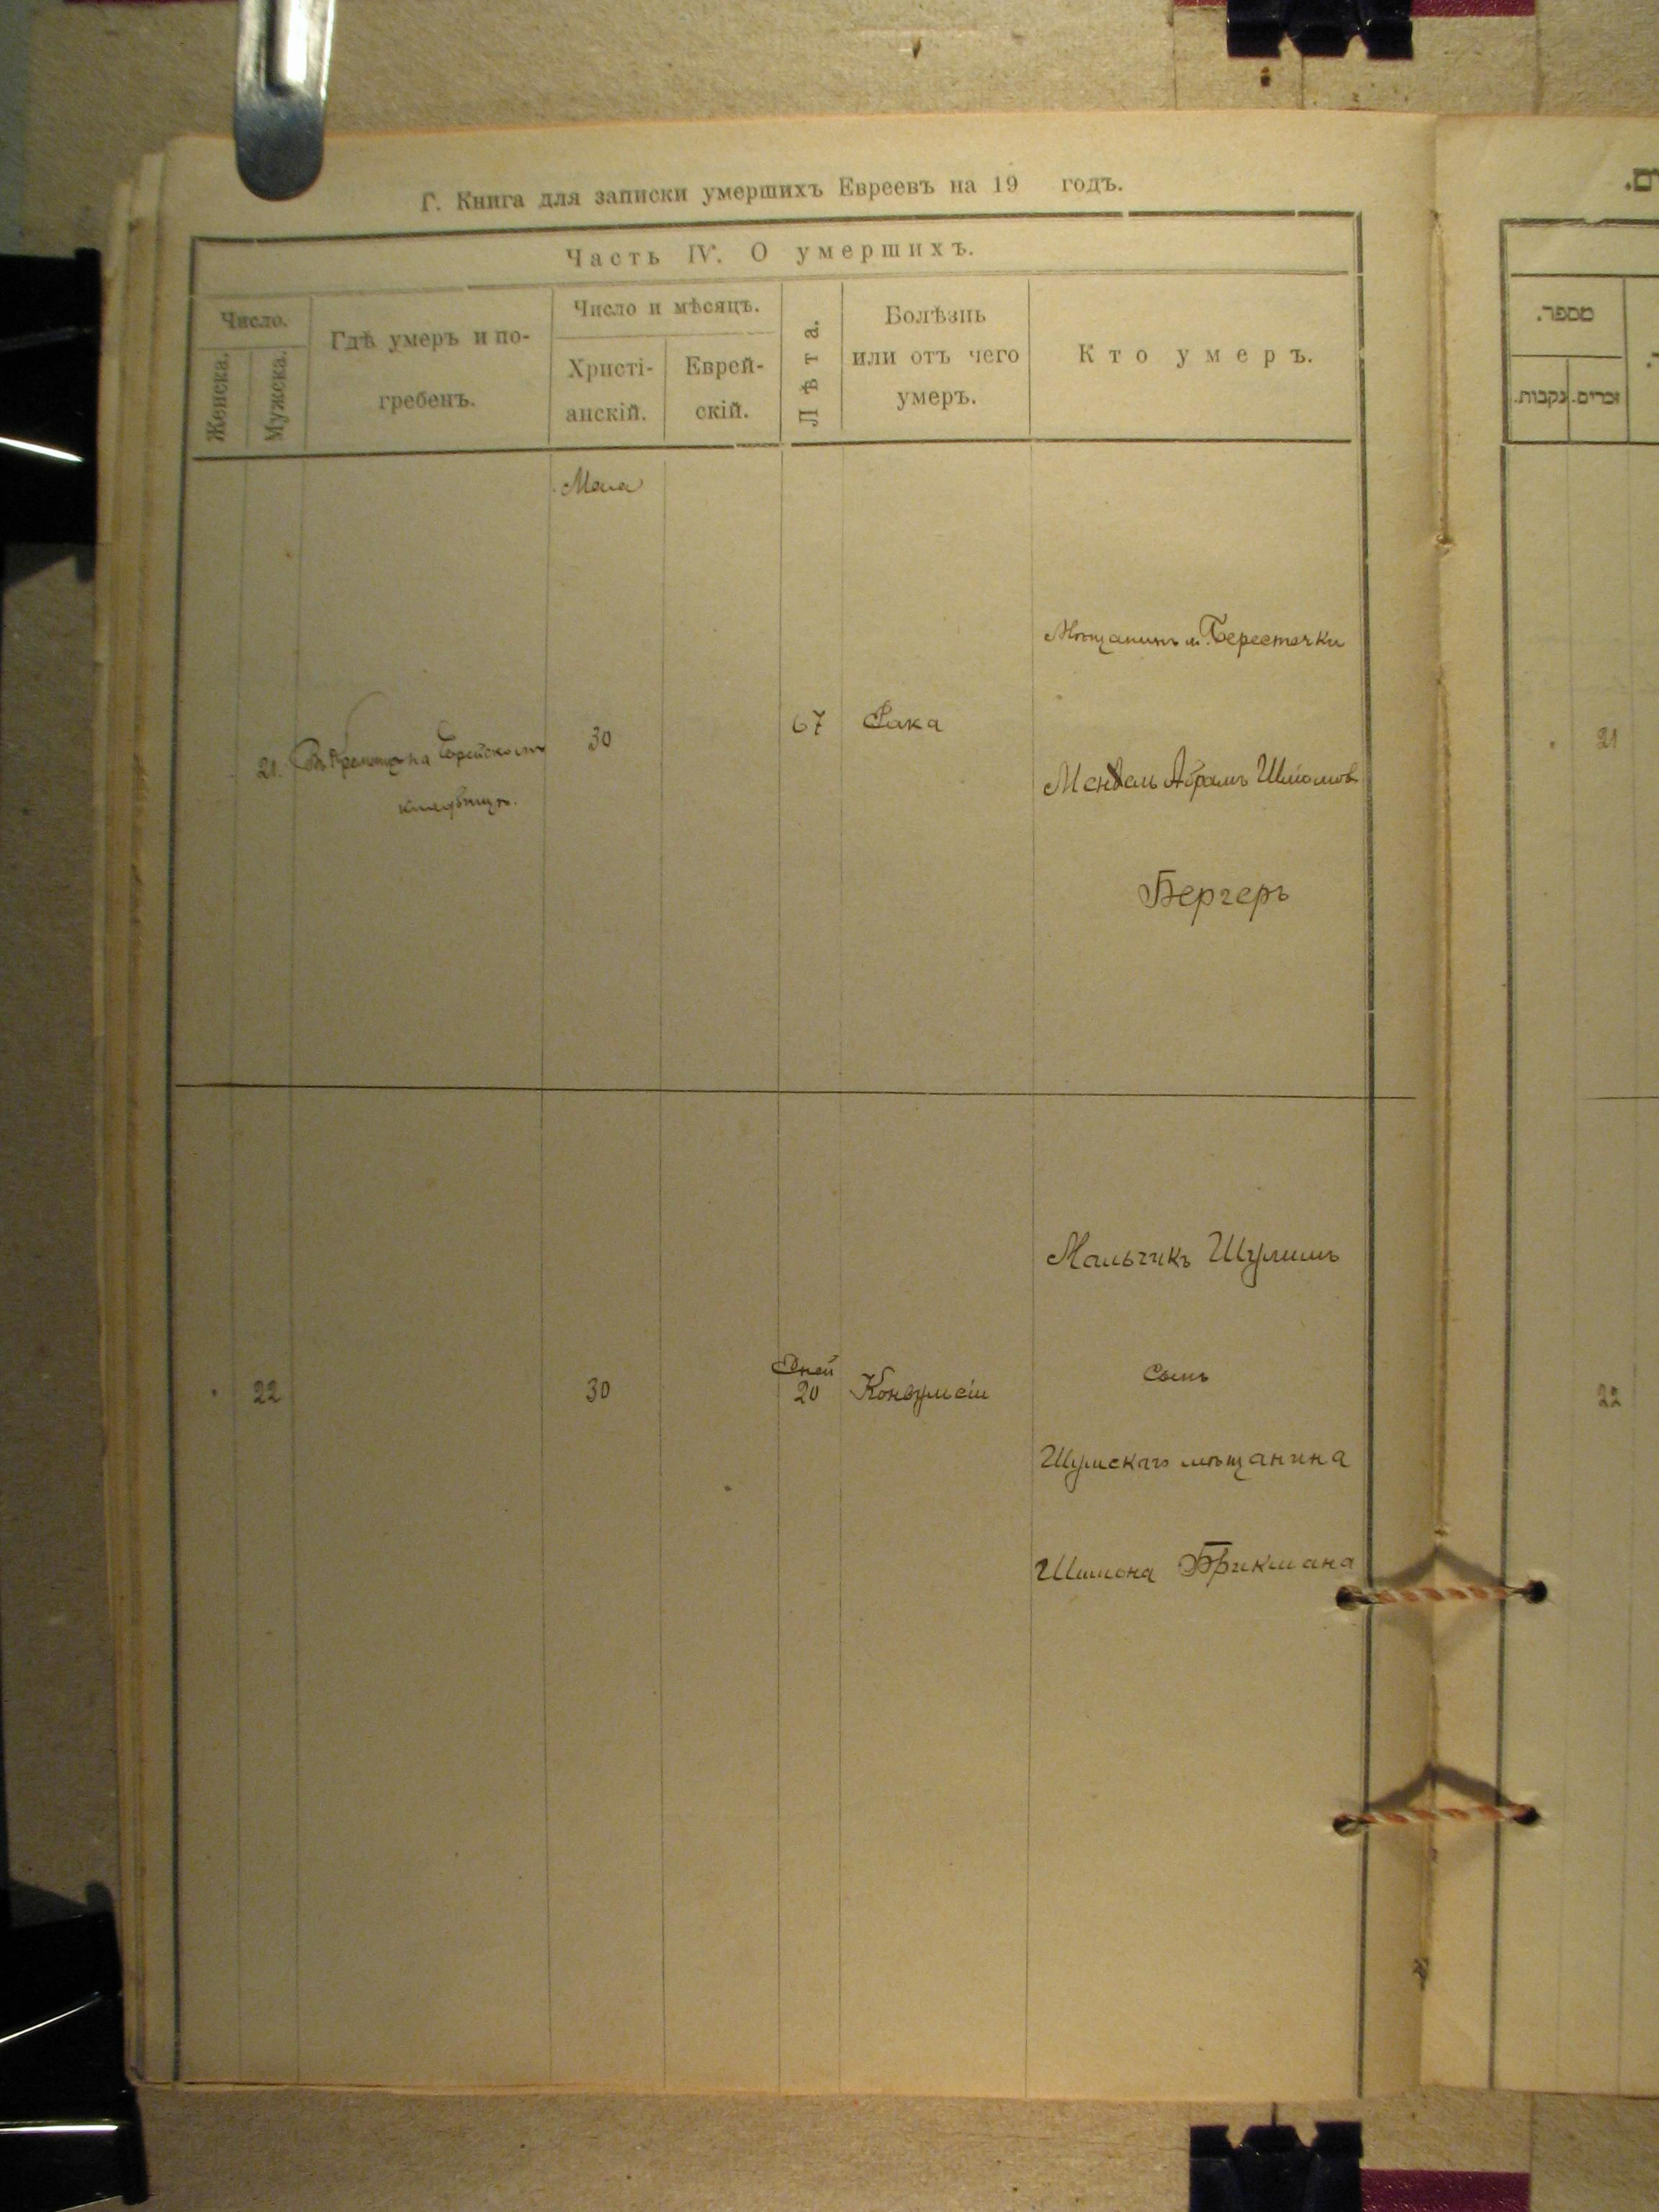 Г. Книга для записки умершихъ Евреевъ на 19 годъ.
Часть IV. О умершихъ.
Число.
Женска.
Мужска.
Гдѣ умеръ и по-
гребенъ.
Число и мѣсяцъ.
Христі-
анскій.
Еврей-
скій.
Лѣта.
Болѣзнь
или отъ чего
умеръ.
Кто умеръ.
Мая
21.
на Еврейскомъ
30
67
Рака
Мѣщанинъ м. Берестечки
Мендель Абрамъ
Бергеръ
22
30
Дней
20
Конвулсіи
Мальчикъ Шулимъ
Сынъ
Шумскаго мѣщанина
Шимона Брикмана
מספר.
זכרים.
נקבות.
21
22